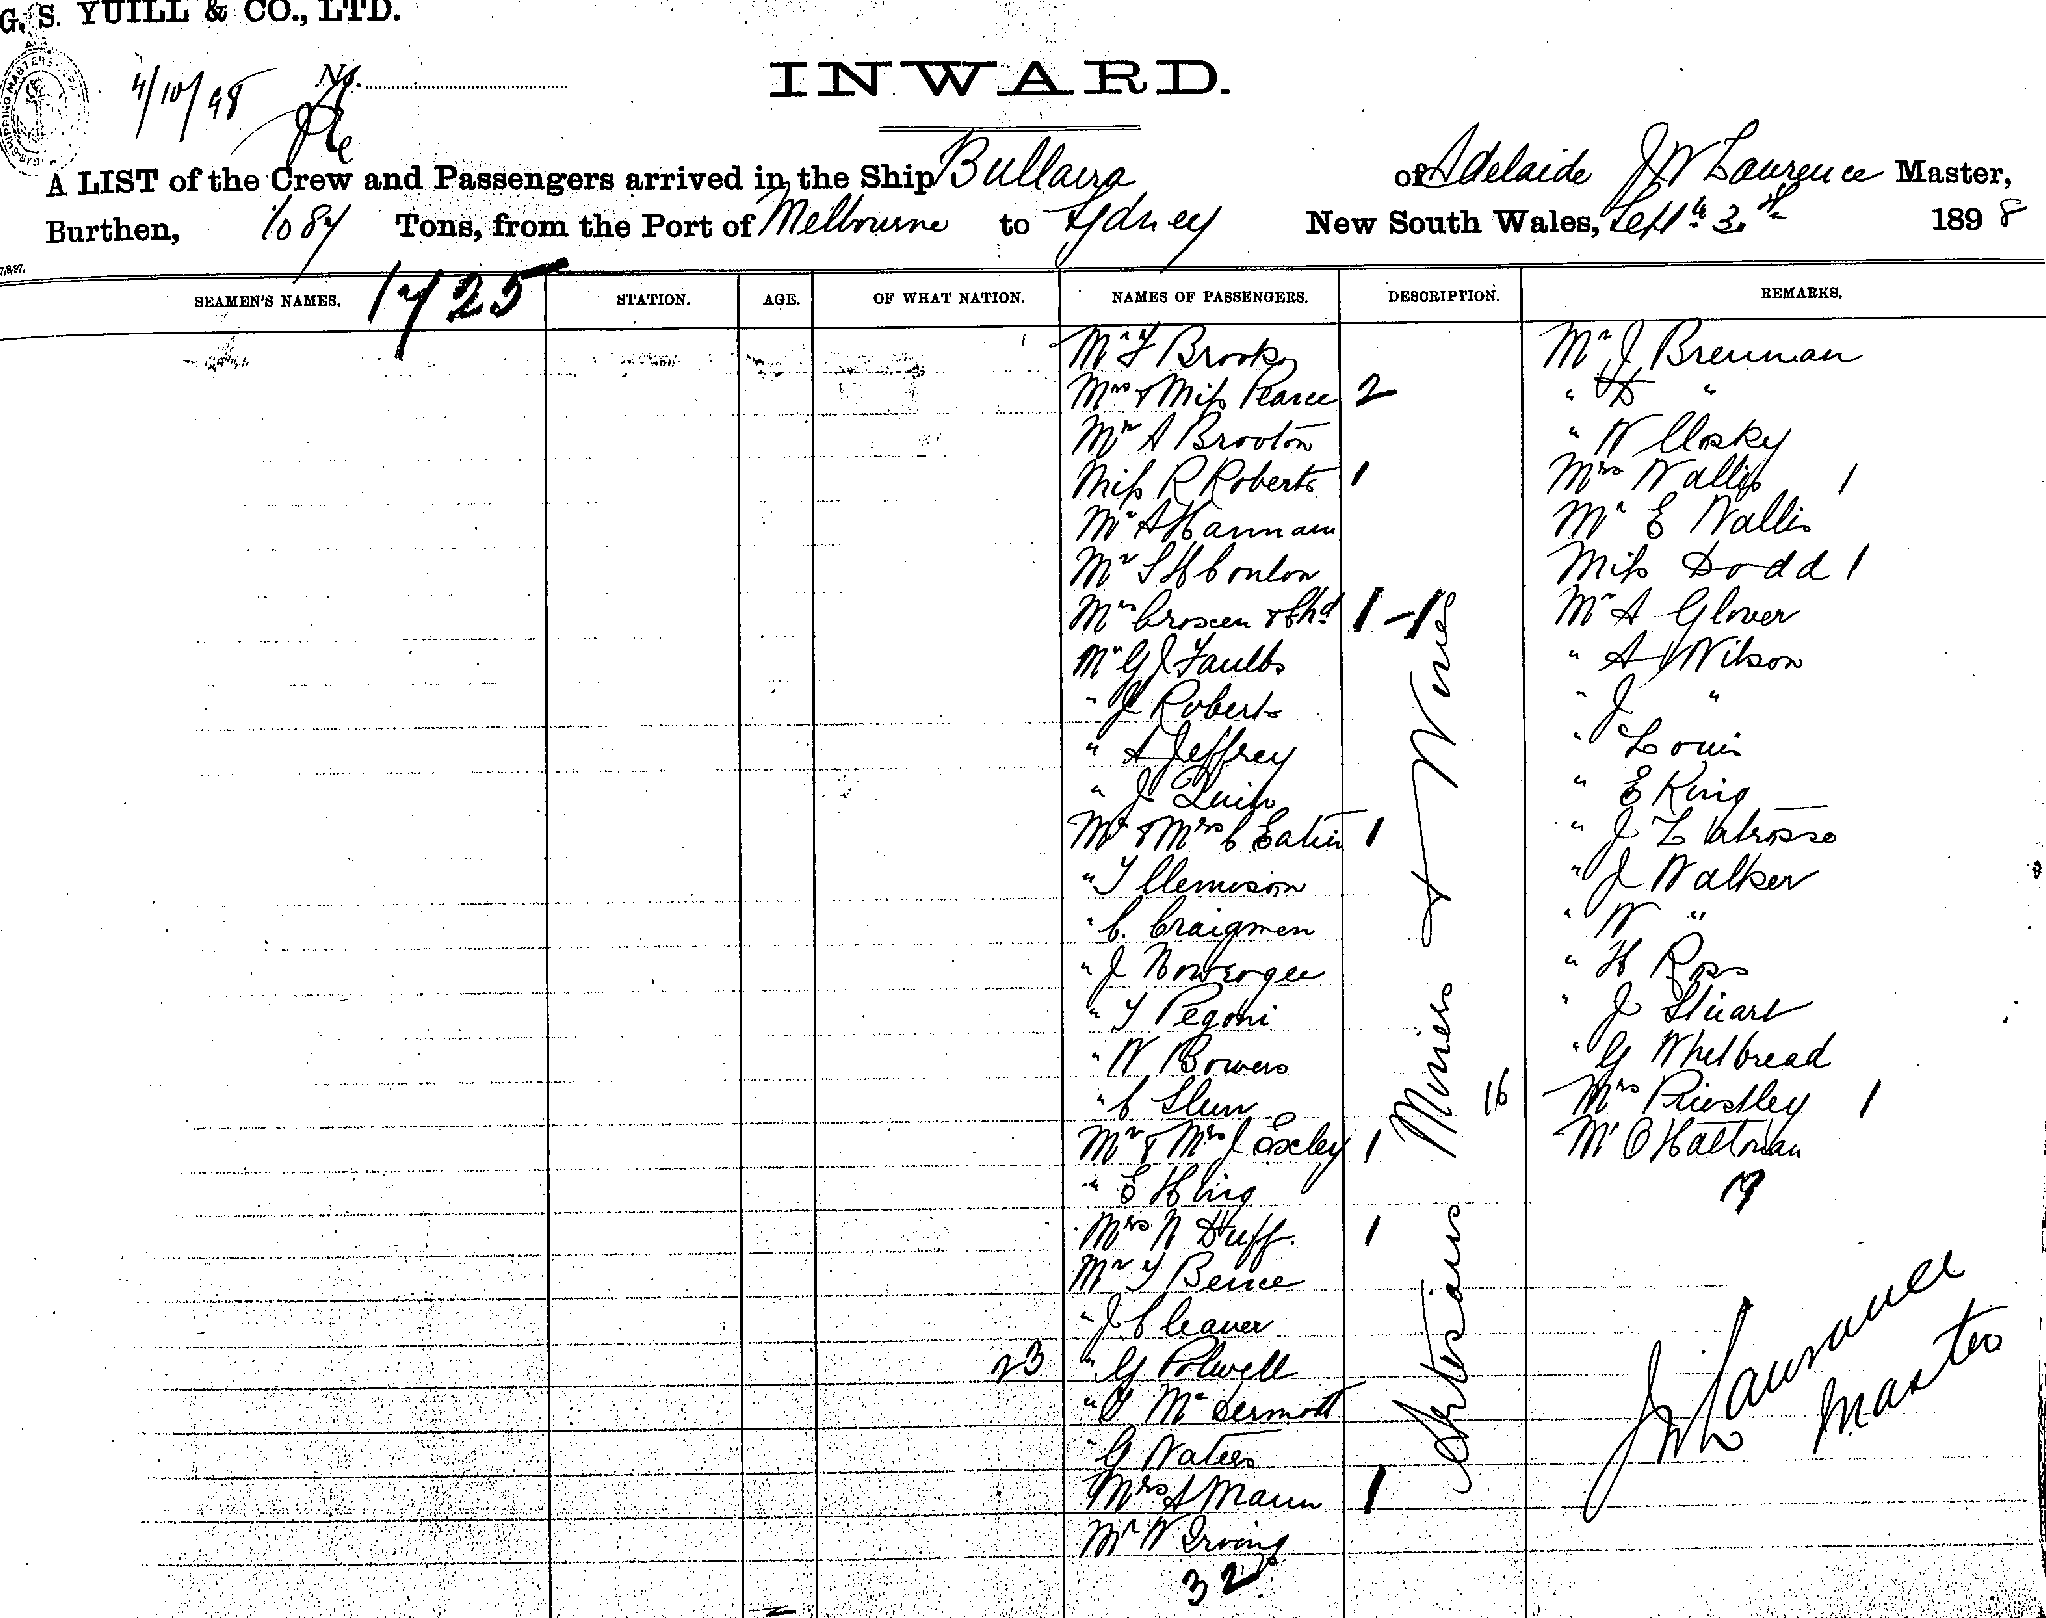 G. S. YUILL & CO., LTD.
4/10/98 No.
INWARD.
A LIST of the Crew and Passengers arrived in the Ship Bullarra of Adelaide J W Lawrence Master,
Burthen, 1087 Tons, from the Port of Melbourne to Sydney New South Wales, Sept 3 1898
1725
SEAMEN'S NAMES. STATION. AGE. OF WHAT NATION. NAMES OF PASSENGERS. DESCRIPTION. REMARKS.
Mr F Brooks
Mrs & Miss Pearce 2
Mr A Brooton
Miss R Roberts 1
Mr A Hannam
Mr S H Coulon
Mrs & Chd 1 - 1
Mr G J Faulbs
" J Roberts
" A Jeffrey
" J Quin
Mr & Mrs C Eatin 1
" T Clemison
" C. Craigmen
" J
" T Pegoni
" W Bowers
" C
Mr & Mrs J Exley 1
" E H
Mrs N Duff. 1
Mr T
" J Cleaver
23 " G Polwell
" McDermott
" G Waters
Mrs A Mann 1
Mr W Irving
32
Artesians Mines & Wives
16
Mr J Brennan
" D "
" W Closky
Mrs Wallis 1
Mr E Wallis
Miss Dodd 1
Mr A Glover
" A J Wilson
" J "
" Louis
" E King
" J
" J Walker
" W "
" H Ross
" J Stuart
" G Whitbread
Mrs Priestley 1
Mr O Haltman
19
J W Lawrence
Master